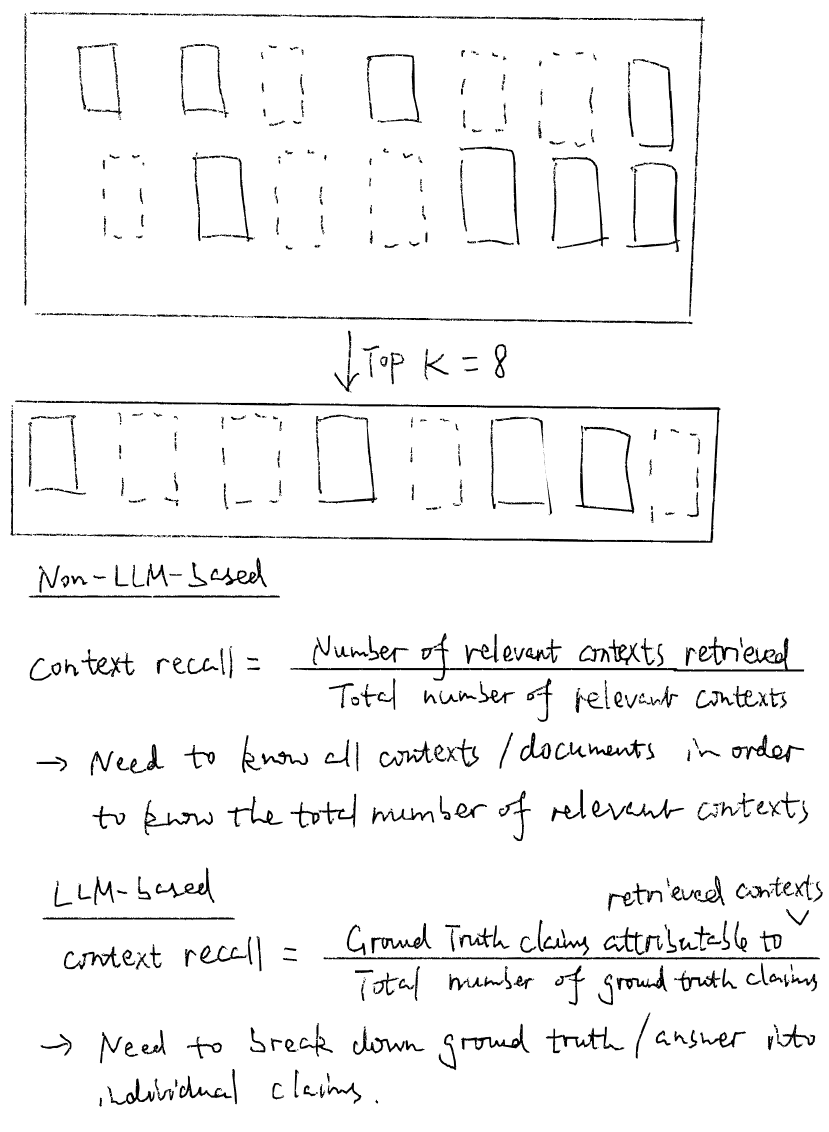 Top K = 8
Non-LLM-based
Context recall = Number of relevant contexts retrieved
Total number of relevant contexts
→ Need to know all contexts / documents in order
to know the total number of relevant contexts
LLM-based
retrieved contexts
context recall = Ground Truth claims attributable to
Total number of ground truth claims
→ Need to break down ground truth / answer into
individual claims.